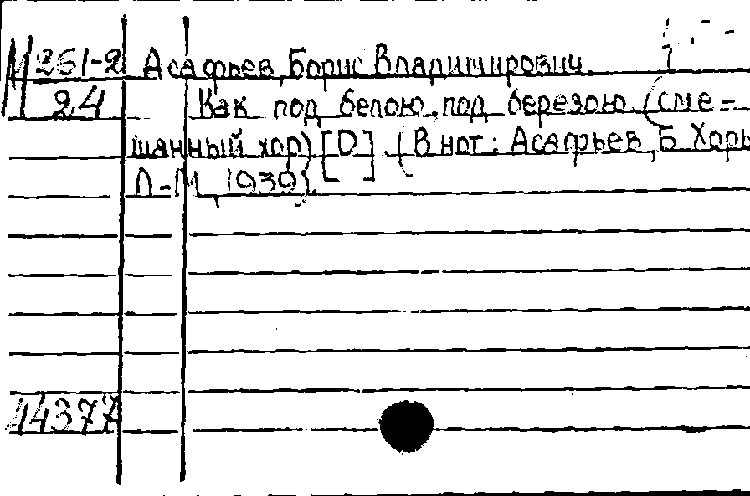 М 261-2 Асафьев, Борис Владимирович.
24 Как под белою, под березою (сме-
шанный хор) [D]. (В нот: Асафьев, Б. Хоры
Л.-М., 1939).
44377